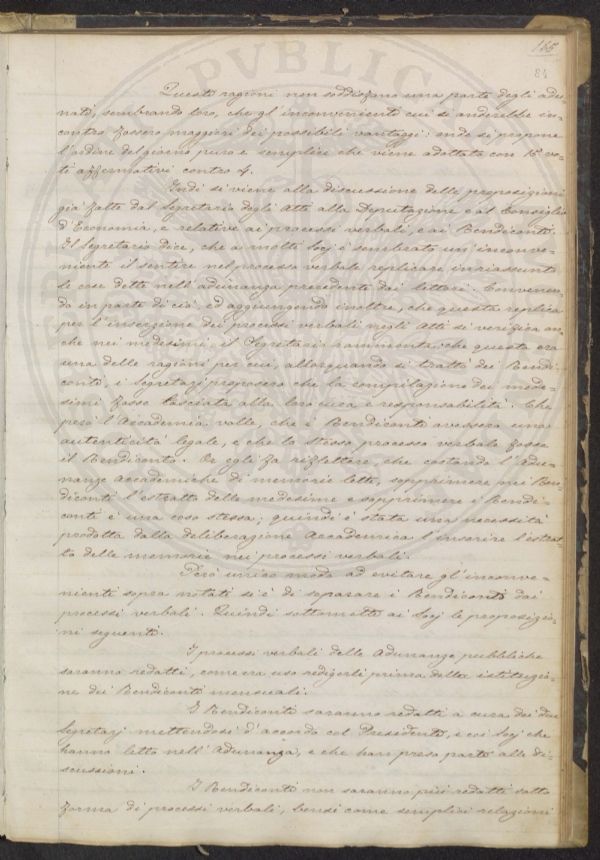 165
84
Queste ragioni non soddisfano una parte degli adu-
nati, sembrando loro, che gl'inconvenienti cui si anderebbe in-
contro fossero maggiori dei possibili vantaggi: onde si propone
l'ordine del giorno puro e semplice che viene adottato con 18 vo-
ti affermativi contro 4.
Indi si viene alla discussione delle proposizioni
già fatte dal Segretario degli Atti alla Deputazione e al Consiglio
d'Economia, e relative ai processi verbali, e ai Rendiconti.
Il Segretario dice, che a molti Socj è sembrato un'inconve-
niente il sentire nel processo verbale replicare in riassunto
le cose dette nell'adunanza precedente dai lettori. Convenen-
do in parte di ciò, ed aggiungendo inoltre, che questa replica
per l'inserzione dei processi verbali negli Atti si verifica an-
che nei medesimi, il Segretario rammenta, che questa era
una delle ragioni per cui, allorquando si trattò dei Rendi-
conti, i Segretarj proposero che la compilazione dei mede-
simi fosse lasciata alla loro cura e responsabilità. Che
però l'Accademia volle, che i Rendiconti avessero una
autenticità legale, e che lo stesso processo verbale fosse
il Rendiconto. Or egli fa riflettere, che costando l'Adu-
nanze Accademiche di memorie lette, sopprimere nei Ren-
diconti l'estratto delle medesime e sopprimere i Rendi-
conti è una cosa stessa; quindi è stata una necessità
prodotta dalla deliberazione Accademica l'inserire l'estrat-
to delle memorie nei processi verbali.
Però unico modo ad evitare gl'inconve-
nienti sopra notati si è di separare i Rendiconti dai
processi verbali. Quindi sottomette ai Socj le proposizio-
ni seguenti.
I processi verbali delle Adunanze pubbliche
saranno redatti, come era uso redigerli prima della istituzio-
ne dei Rendiconti mensuali.
I Rendiconti saranno redatti a cura dei due
Segretarj mettendosi d'accordo col Presidente, e coi Socj che
hanno letto nell'Adunanza, e che han preso parte alle di-
scussioni.
I Rendiconti non saranno più redatti sotto
forma di processi verbali, bensì come semplici relazioni